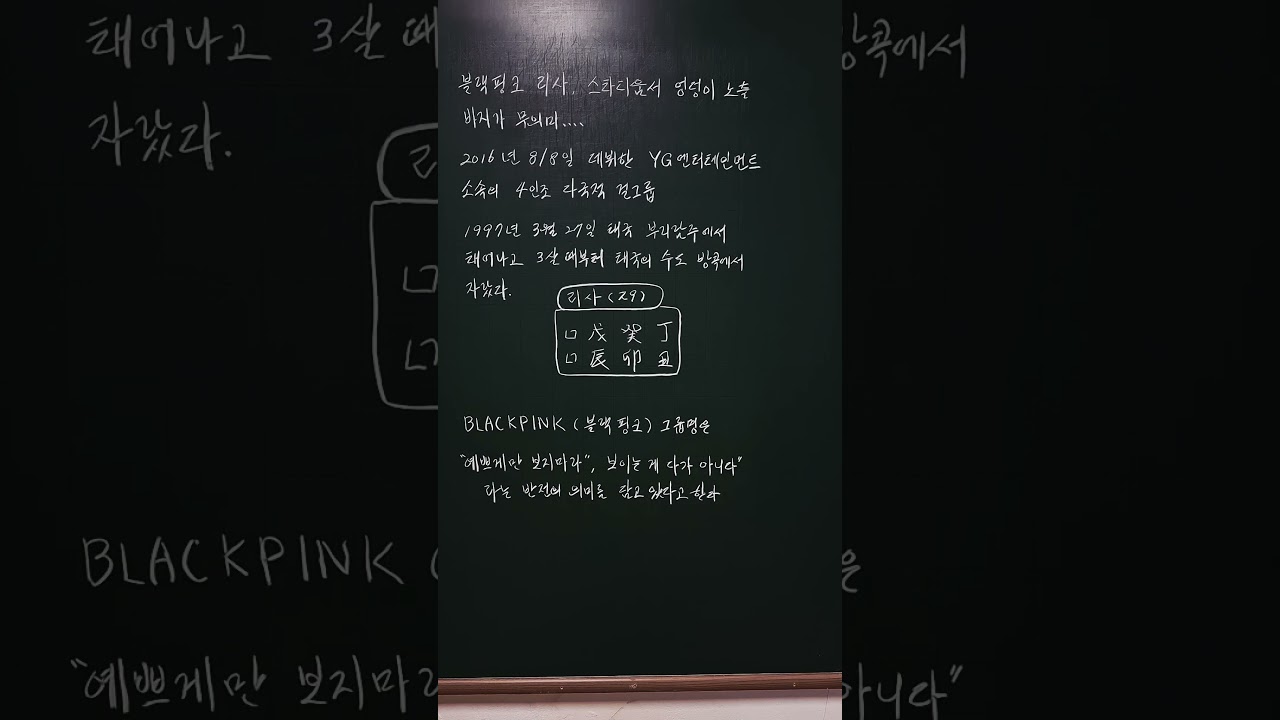 블랙핑크 리사, 스타디움서 엉덩이 노출
바지가 무의미....
2016년 8/8일 데뷔한 YG엔터테인먼트
소속의 4인조 다국적 걸그룹
1997년 3월 27일 태국 부리람주에서
태어나고 3살때부터 태국의 수도 방콕에서
자랐다.
리사(29)
□ 戊 癸 丁
□ 辰 卯 丑
BLACKPINK (블랙핑크) 그룹명은
"예쁘게만 보지마라", 보이는게 다가 아니다"
라는 반전의 의미를 담고 있다고 한다
태어나고 3살때
방콕에서
자랐다.
리
□
□
BLACKPINK (
은
"예쁘게만 보지마라
아니다"